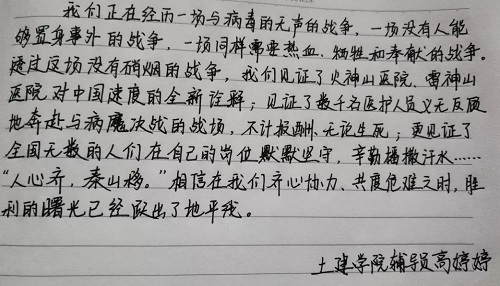 我们正在经历一场与病毒的无声的战争，一场没有人能
够置身事外的战争，一场同样需要热血、牺牲和奉献的战争。
透过这场没有硝烟的战争，我们见证了火神山医院、雷神山
医院对中国速度的全新诠释；见证了数千名医护人员义无反顾
地奔赴与病魔决战的战场，不计报酬、无论生死；更见证了
全国无数的人们在自己的岗位默默坚守，辛勤播撒汗水……
“人心齐，泰山移。”相信在我们齐心协力、共度危难之时，胜
利的曙光已经跃出了地平线。
土建学院辅导员高婷婷